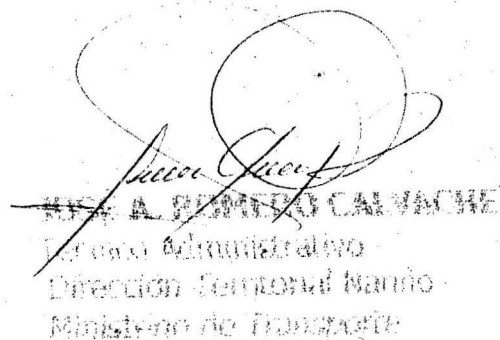 JOSE A. ROMERO CALVACHE
Técnico Administrativo
Dirección Territorial Nariño
Ministerio de Transporte